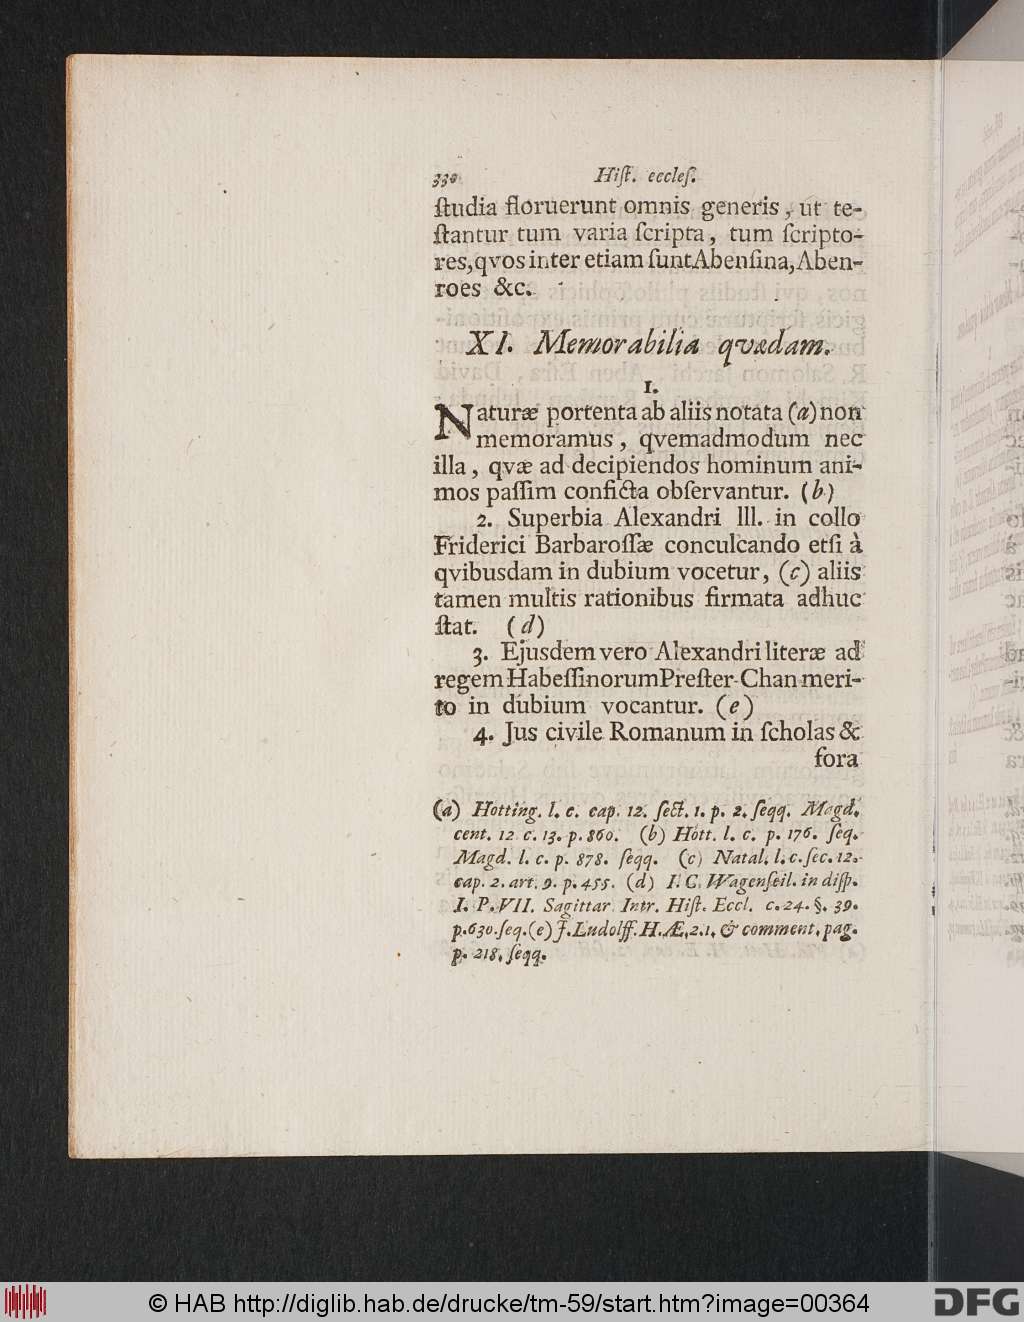 330 Hiſt. eccleſ.
ſtudia floruerunt omnis generis, ut te-
ſtantur tum varia ſcripta, tum ſcripto-
res, qvos inter etiam ſunt Abenſina, Aben-
roes &c.
XI. Memorabilia qvædam.
1.
Naturæ portenta ab aliis notata (a) non
memoramus, qvemadmodum nec
illa, qvæ ad decipiendos hominum ani-
mos paſſim conficta obſervantur. (b)
2. Superbia Alexandri lll. in collo
Friderici Barbaroſſæ conculcando etſi à
qvibusdam in dubium vocetur, (c) aliis
tamen multis rationibus firmata adhuc
ſtat. (d)
3. Ejusdem vero Alexandri literæ ad
regem Habeſſinorum Preſter-Chan meri-
to in dubium vocantur. (e)
4. Jus civile Romanum in ſcholas &
fora
(a) Hotting. l. c. cap. 12. ſect. 1. p. 2. ſeqq. Magd.
cent. 12 c. 13. p. 860. (b) Hott. l. c. p. 176. ſeq.
Magd. l. c. p. 878. ſeqq. (c) Natal. l. c. ſec. 12.
cap. 2. art. 9. p. 455. (d) I. C. Wagenſeil. in diſſp.
I. P. VII. Sagittar. Intr. Hiſt. Eccl. c. 24. §. 39.
p. 630. ſeq. (e) J. Ludolff. H. Æ. 2. 1. & comment. pag.
p. 218. ſeqq.
© HAB http://diglib.hab.de/drucke/tm-59/start.htm?image=00364
DFG